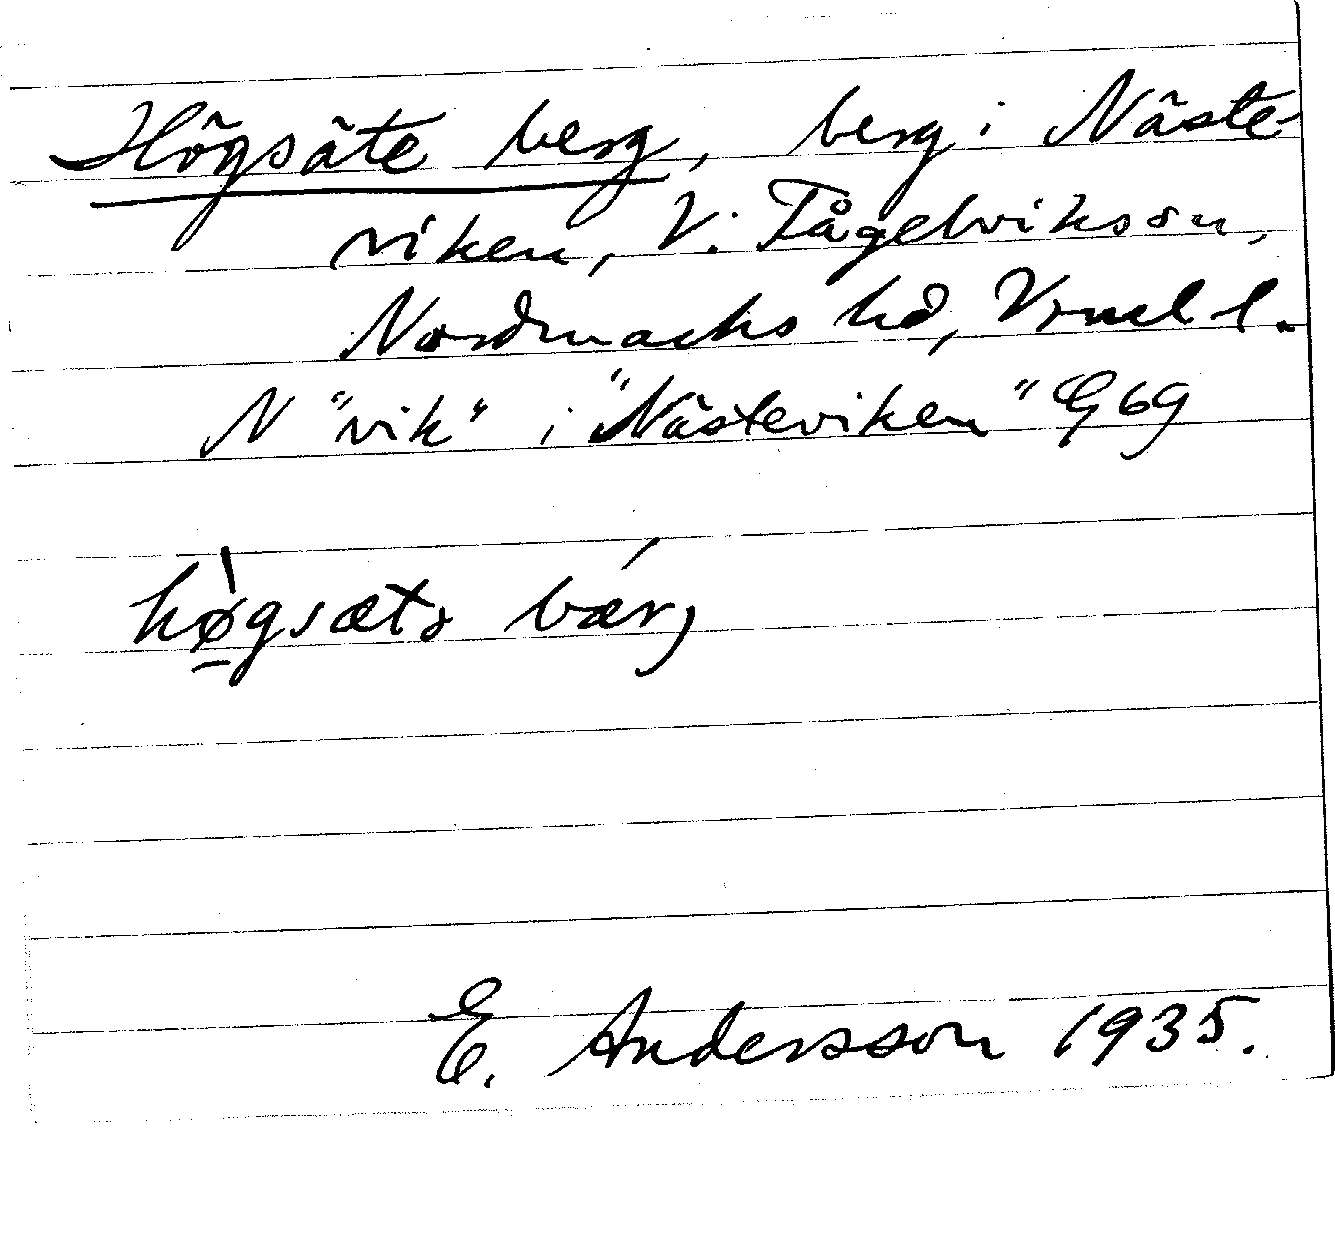 Högsäte berg, berg i Näste-
viken, V. Fågelviks sn,
Nordmarks hd, Vrml l.
N "vik" i "Nästeviken" G 69
hø̀gsæts bærj
E. Andersson 1935.